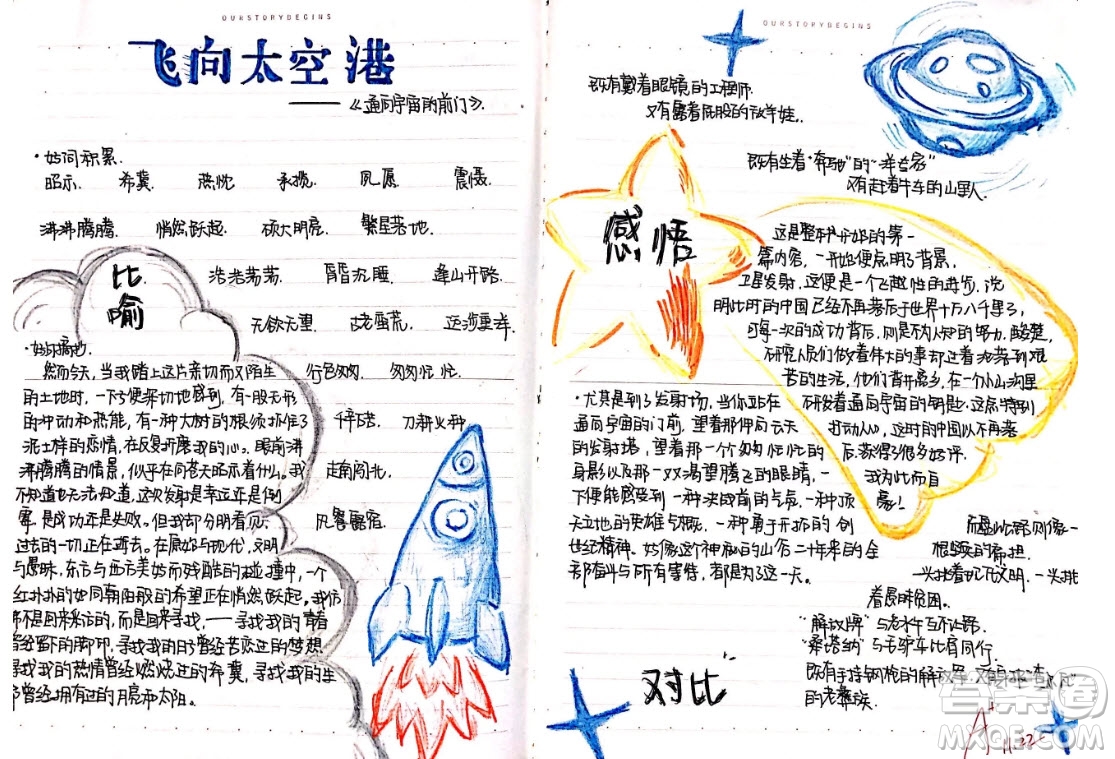 OURSTORYBEGINS
飞向太空港
——《通向宇宙的前门》
·好词积累.
昭示 希冀 热忱 承揽 夙愿 震慑
沸沸腾腾 悄然跃起 硕大明亮 繁星落地
浩浩荡荡 昏昏沉睡 逢山开路
无欲无望 古老蛮荒 远涉重洋
行色匆匆 匆匆忙忙
刀耕火种
走南闯北
风餐露宿
比喻
·好句摘抄.
然而今天,当我踏上这片亲切而又陌生
的土地时,一下便深切地感到,有一股无形
的冲动和热能,有一种大树的根须抓住了
泥土样的恋情,在反复折磨我的心。眼前沸
沸腾腾的情景,似乎在向苍天昭示着什么。我
不知道也无法知道,这次发射是幸运还是倒
霉,是成功还是失败。但我却分明看见,
过去的一切正在逝去。在原始与现代,文明
与愚昧,东方与西方美妙而残酷的碰撞中,一个
红扑扑的如同朝阳般的希望正在悄然跃起。我仿
不是回来采访的,而是回来寻找,——寻找我的青春
曾经留下的脚印,寻找我的昨日曾经苦恋过的梦想
寻找我的热情曾经燃烧过的希冀,寻找我的生
曾经拥有过的月亮和太阳。
OURSTORYBEGINS
既有戴着眼镜的工程师.
又有露着屁股的放羊娃.
既有坐着"奔驰"的"洋专家"
又有赶着牛车的山里人.
感悟
这是整本书开始的第一
篇内容,一开始便点明了背景,
卫星发射,这便是一个飞越性的进步,说
明此时的中国已经不再落后于世界十万八千里了,
可每一次的成功背后,则是不为人知的努力,酸楚
研究人员们做着伟大的事却过着沦落到艰
苦的生活,他们背井离乡,在一个小山沟里
研发着通向宇宙的钥匙。这点特别
打动人心,这时的中国以不再落
后,获得了很多好评.
我为此而自
豪!
·尤其是到了发射场,当你站在
通向宇宙的门前,望着那伸向云天
的发射塔,望着那一个个匆匆忙忙的
身影以及那一双双渴望腾飞的眼睛,一
下便能感受到一种决战前的气氛,一种顶
天立地的英雄气概,一种勇于开拓的创
世纪精神.好像这个神秘的山谷二十年来的全
部奋斗与所有等待,都是为了这一天。
而盘山公路则像一
根坚实的扁担.
一头挑着现代文明,一头挑
着愚昧贫困。
"解放牌"与老水牛互不让路.
"桑塔纳"与毛驴车比肩同行.
的老彝族.
对比
A+
答案圈